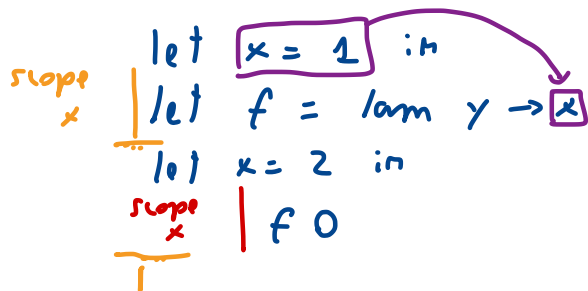 let x = 1 in
scope
x
let f = lam y → x
let x = 2 in
scope
x
f 0